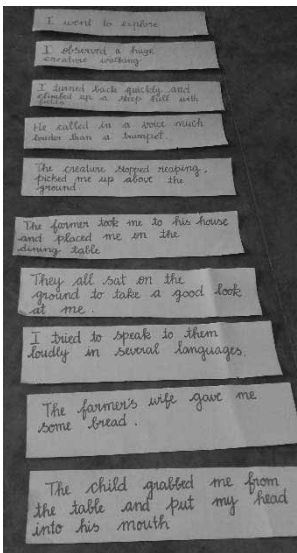 I went to explore
I observed a huge
creature walking
I turned back quickly and
climbed up a steep hill with
He called in a voice much
louder than a trumpet.
The creature stopped reaping,
picked me up above the
ground.
The farmer took me to his house
and placed me on the
dining table
They all sat on the
ground to take a good look
at me.
I tried to speak to them
loudly in several languages.
The farmer's wife gave me
some bread.
The child grabbed me from
the table and put my head
into his mouth